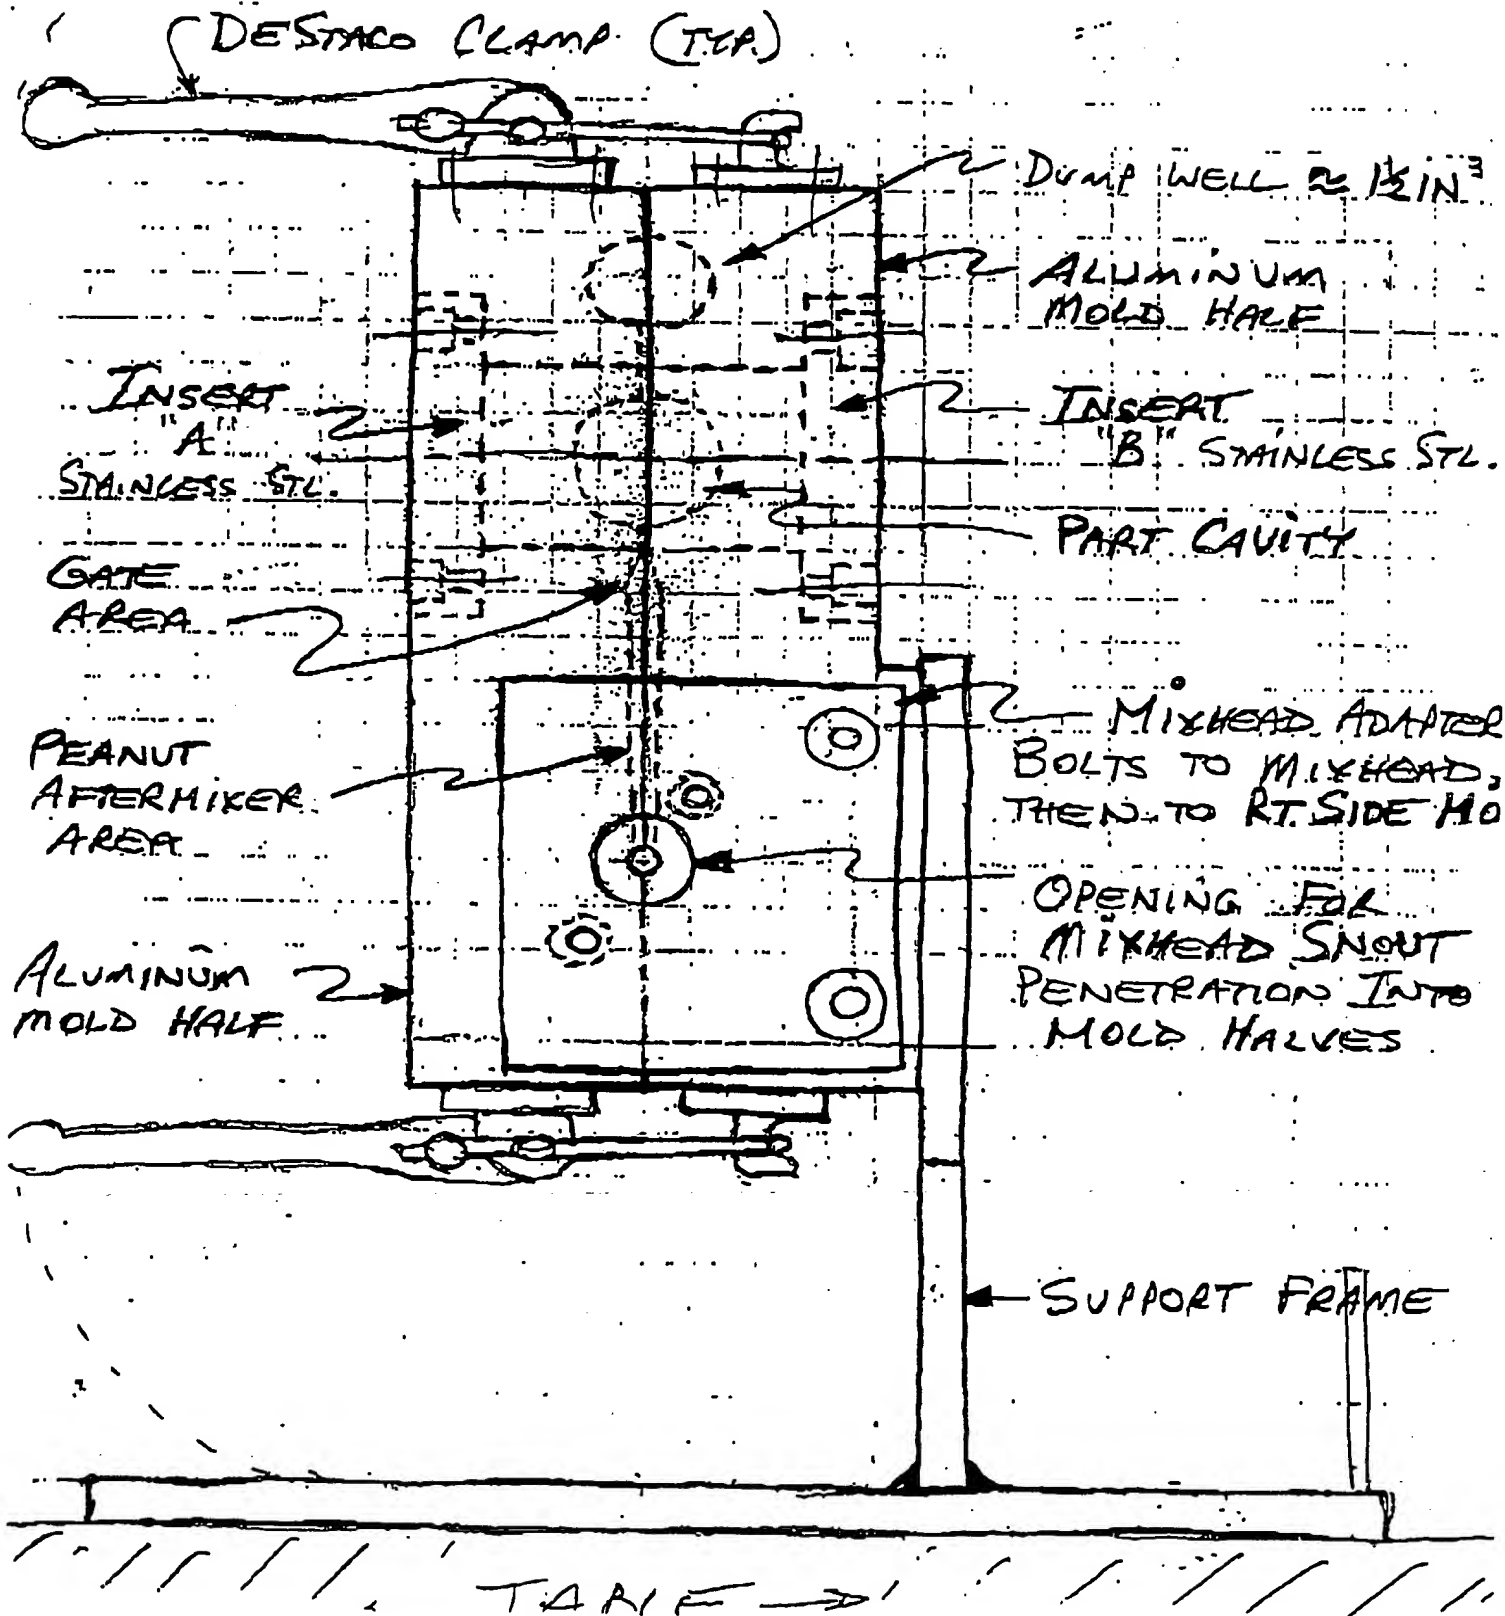 DESTACO CLAMP (TYP.)
DUMP WELL ≈ 1½ IN³
ALUMINUM
MOLD HALF
INSERT
"A"
STAINLESS STL.
INSERT
"B" STAINLESS STL.
PART CAVITY
GATE
AREA
PEANUT
AFTERMIXER
AREA
MIXHEAD ADAPTER
BOLTS TO MIXHEAD,
THEN TO RT. SIDE MO
OPENING FOR
MIXHEAD SNOUT
PENETRATION INTO
MOLD HALVES
ALUMINUM
MOLD HALF
SUPPORT FRAME
TABLE